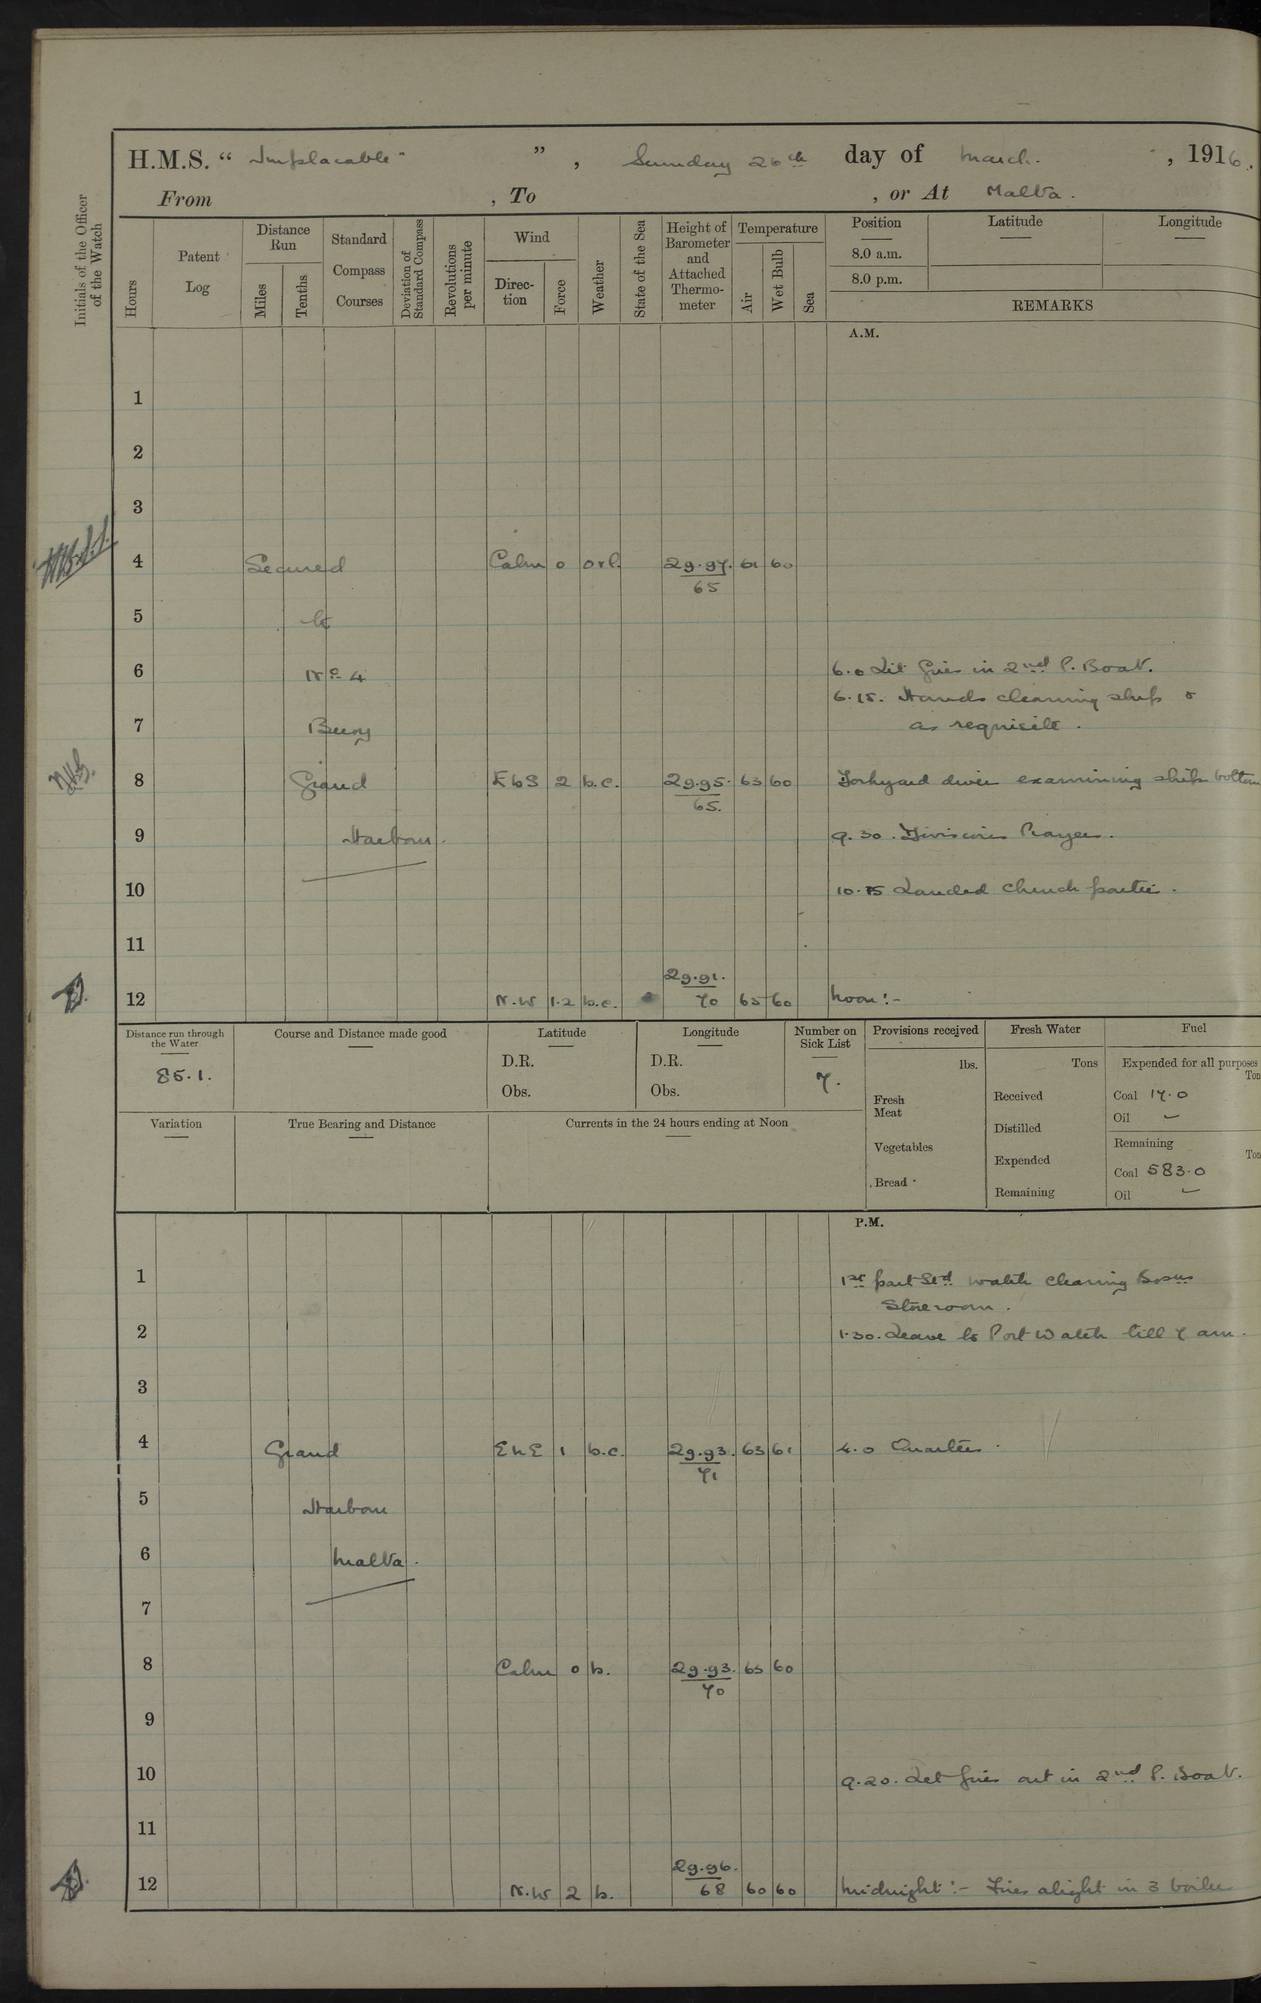 H.M.S. “ Implacable ” , Sunday 26th day of March , 1916.
From , To , or At Malta.
Initials of the Officer of the Watch
Hours
Patent Log
Distance Run
Miles
Tenths
Standard Compass Courses
Deviation of Standard Compass
Revolutions per minute
Wind
Direction
Force
Weather
State of the Sea
Height of Barometer and Attached Thermometer
Temperature
Air
Wet Bulb
Sea
Position
Latitude
Longitude
8.0 a.m.
8.0 p.m.
REMARKS
A.M.
1
2
3
4 Secured Calm 0 29.97. 61 60
65
5 to
6 No 4 6.0 Lit fires in 2nd P. Boat.
6.15. Hands cleaning ship &
7 Buoy as requisite.
8 Grand E b S 2 b.c. 29.95. 63 60 Dockyard diver examining ships bottom
65.
9 Harbour. 9.30. Divisions Prayers.
10 10.15 Landed Church parties.
11
29.91.
12 N.W 1.2 b.c. 70 65 60 Noon:-
Distance run through the Water
85.1.
Course and Distance made good
Latitude
D.R.
Obs.
Longitude
D.R.
Obs.
Number on Sick List
7.
Provisions received
lbs.
Fresh Meat
Vegetables
Bread
Fresh Water
Tons
Received
Distilled
Expended
Remaining
Fuel
Expended for all purposes
Ton
Coal 17.0
Oil –
Remaining
Ton
Coal 583.0
Oil –
Variation
True Bearing and Distance
Currents in the 24 hours ending at Noon
P.M.
1 1st part Std watch cleaning Bosuns
Storeroom.
2 1.30. Leave to Port Watch till 7 am.
3
4 Grand 1 b.c. 29.93. 63 61 4.0 Quarters.
71
5 Harbour
6 Malta.
7
8 Calm 0 b. 29.93. 63 60
70
9
10 9.20. Let fires out in 2nd P. Boat.
11
29.96.
12 N.W 2 b. 68 60 60 Midnight:- Fires alight in 3 boiler